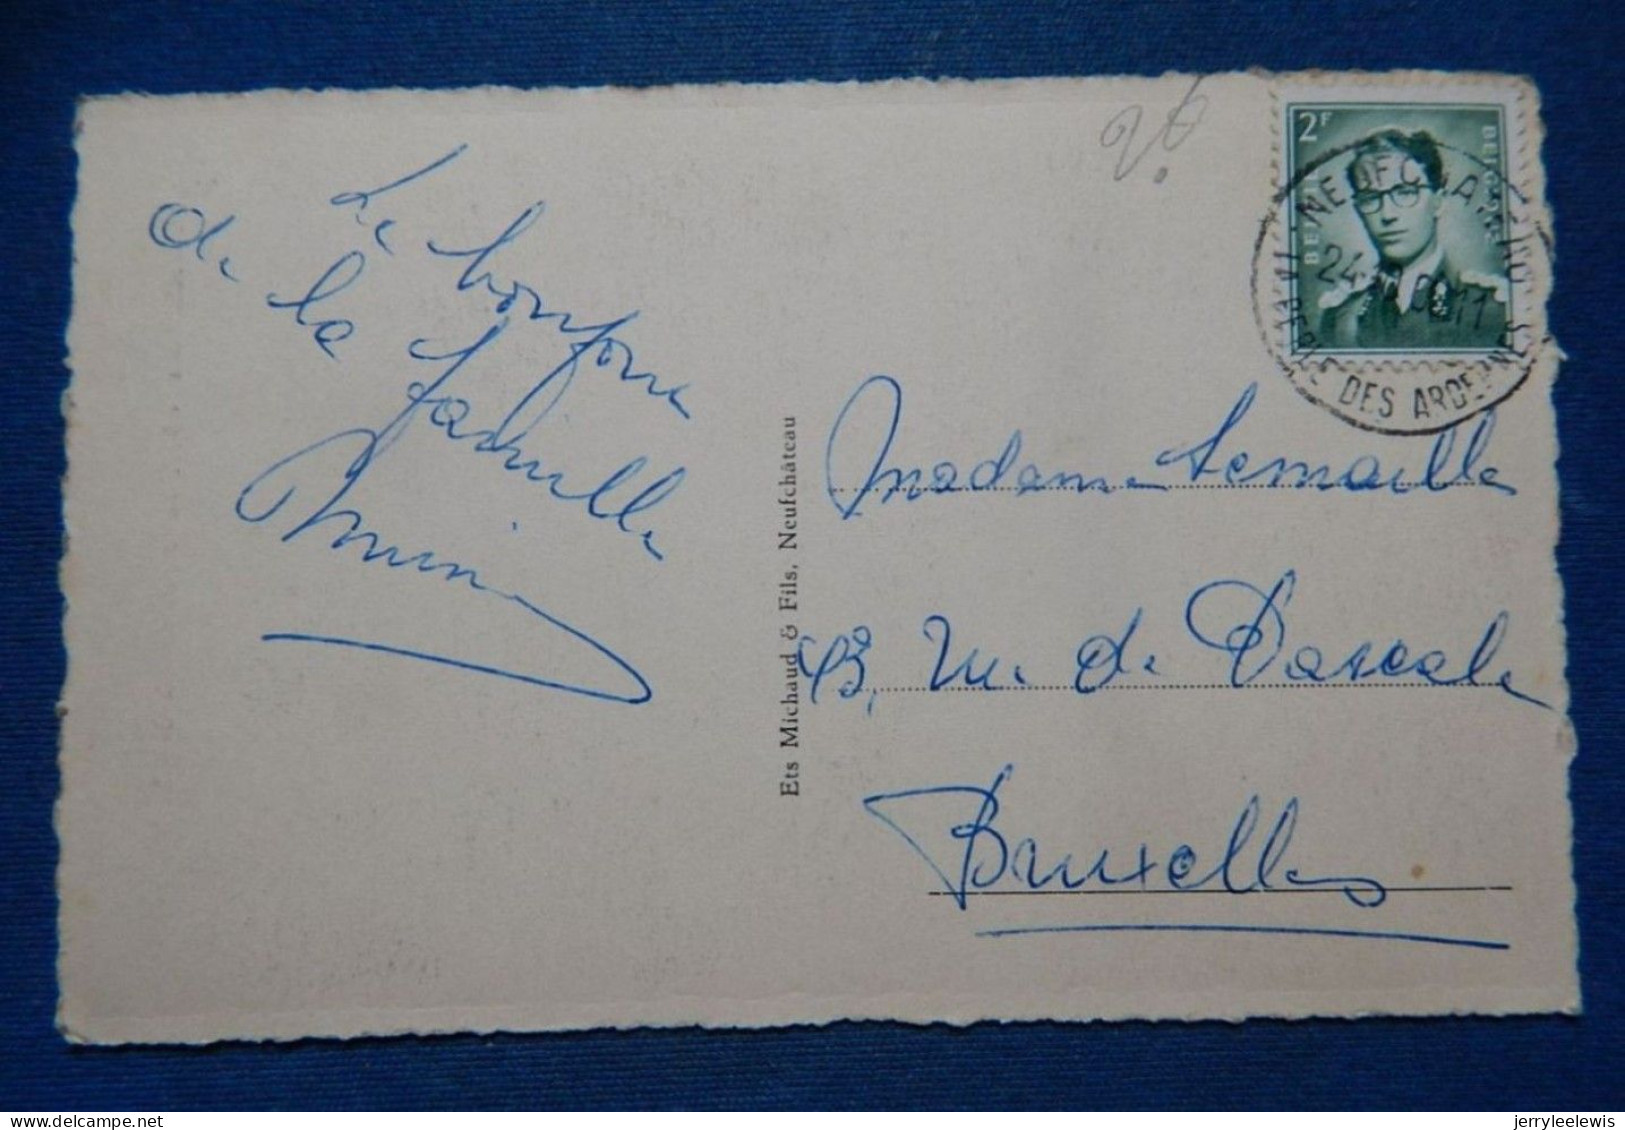 Le bonjour
de la famille
Ets Michaud & Fils, Neufchâteau
2F
BELGIE
BELGIQUE
NEUFCHATEAU
24
11
PERLE DES ARDENNES
Madame Lemaille
43, rue de Pascale
Bruxelles
jerryleelewis